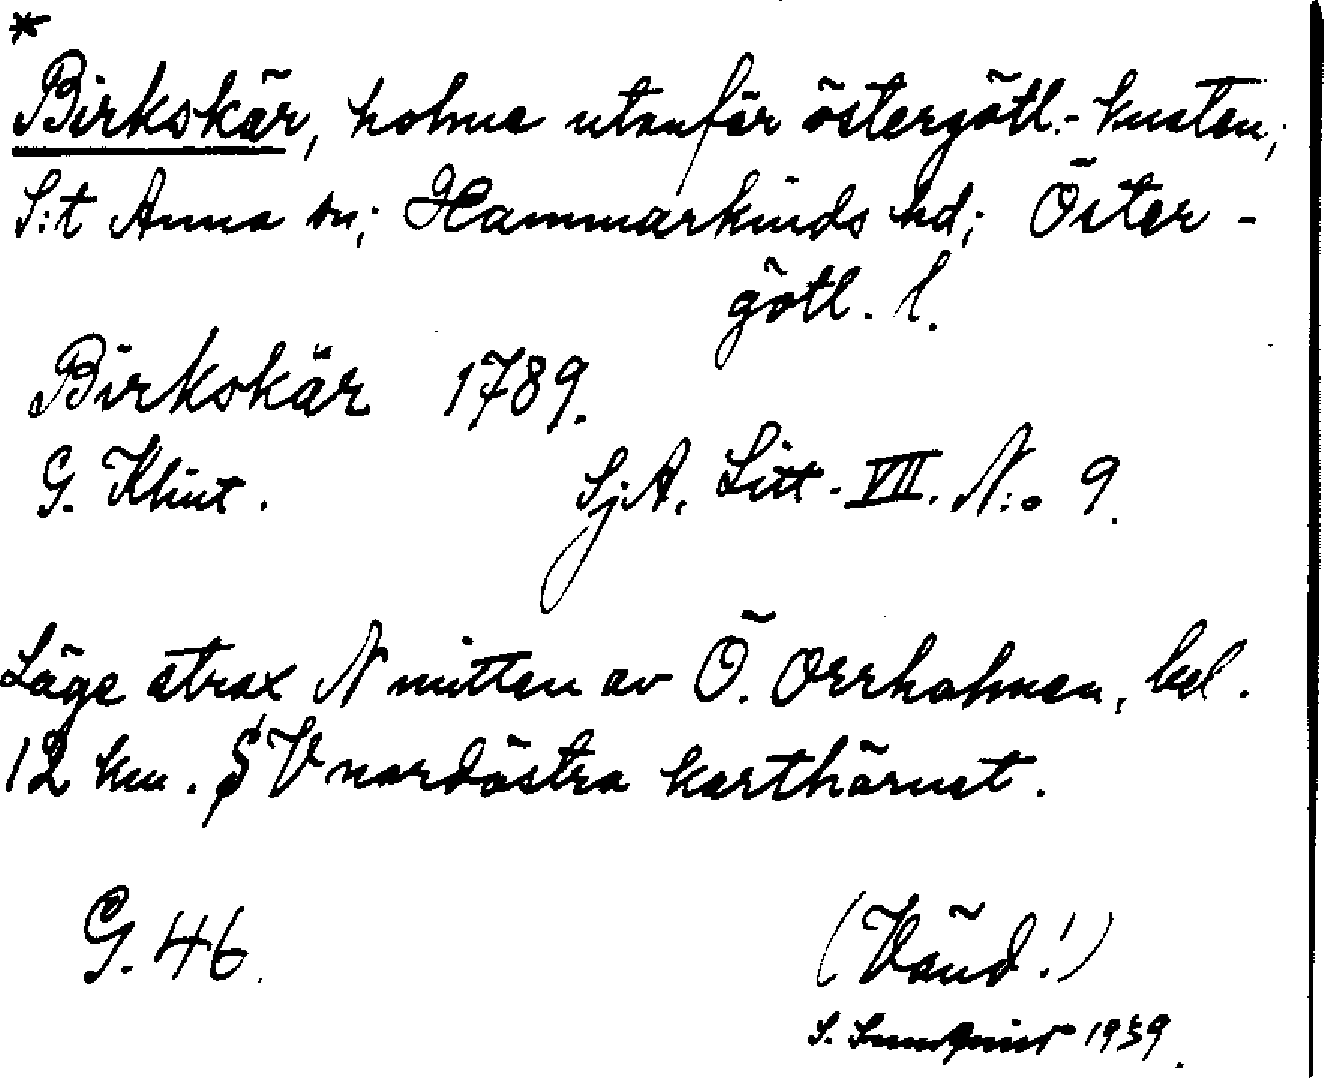 *
Birkskär, holme utanför östergötl.-kusten;
S:t Anna sn; Hammarkinds hd; Öster-
götl. l.
Birkskär 1789.
G. Klint. SjA. Litt. VII. N:o 9.
Läge strax N mitten av Ö. Orrholmen, bel.
12 km. SV nordöstra karthörnet.
G. 46.
(Vänd!)
S. 1939.